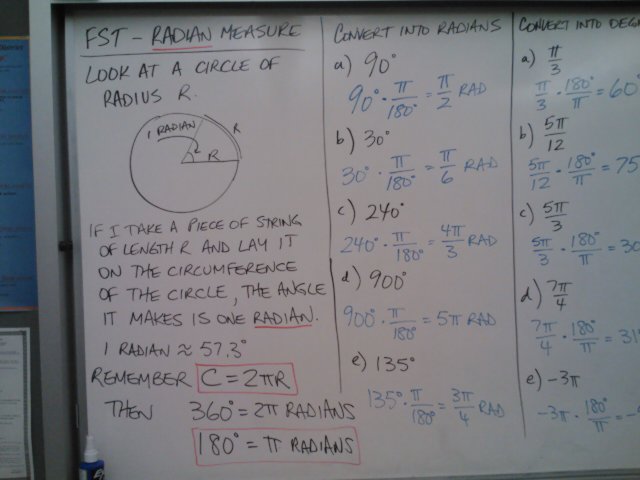 FST - RADIAN MEASURE
LOOK AT A CIRCLE OF
RADIUS R.
1 RADIAN
R
R
IF I TAKE A PIECE OF STRING
OF LENGTH R AND LAY IT
ON THE CIRCUMFERENCE
OF THE CIRCLE, THE ANGLE
IT MAKES IS ONE RADIAN.
1 RADIAN ≈ 57.3°
REMEMBER C = 2πR
THEN 360° = 2π RADIANS
180° = π RADIANS
CONVERT INTO RADIANS
a) 90°
90° · π/180° = π/2 RAD
b) 30°
30° · π/180° = π/6 RAD
c) 240°
240° · π/180° = 4π/3 RAD
d) 900°
900° · π/180° = 5π RAD
e) 135°
135° · π/180° = 3π/4 RAD
CONVERT INTO DEG
a) π/3
π/3 · 180°/π = 60°
b) 5π/12
5π/12 · 180°/π = 75
c) 5π/3
5π/3 · 180°/π = 30
d) 7π/4
7π/4 · 180°/π = 31
e) -3π
-3π · 180°/π = -